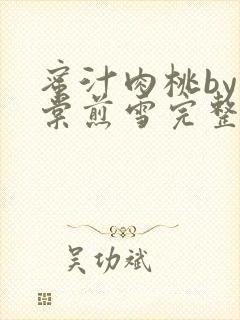 蜜汁肉桃by
棠煎雪完整
吴功斌